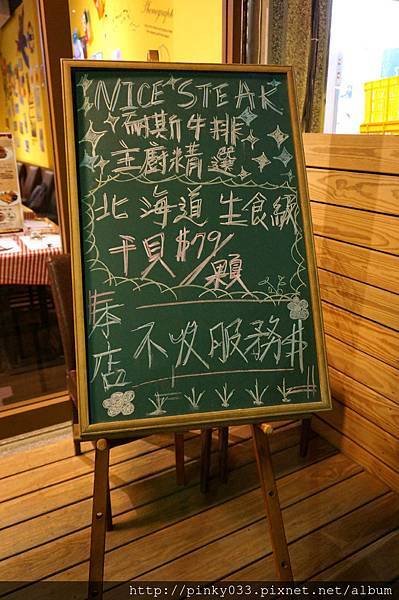 NICE STEAK
耐斯牛排
主廚精選
北海道生食級
干貝$79/顆
本店不收服務$
http://pinky033.pixnet.net/album